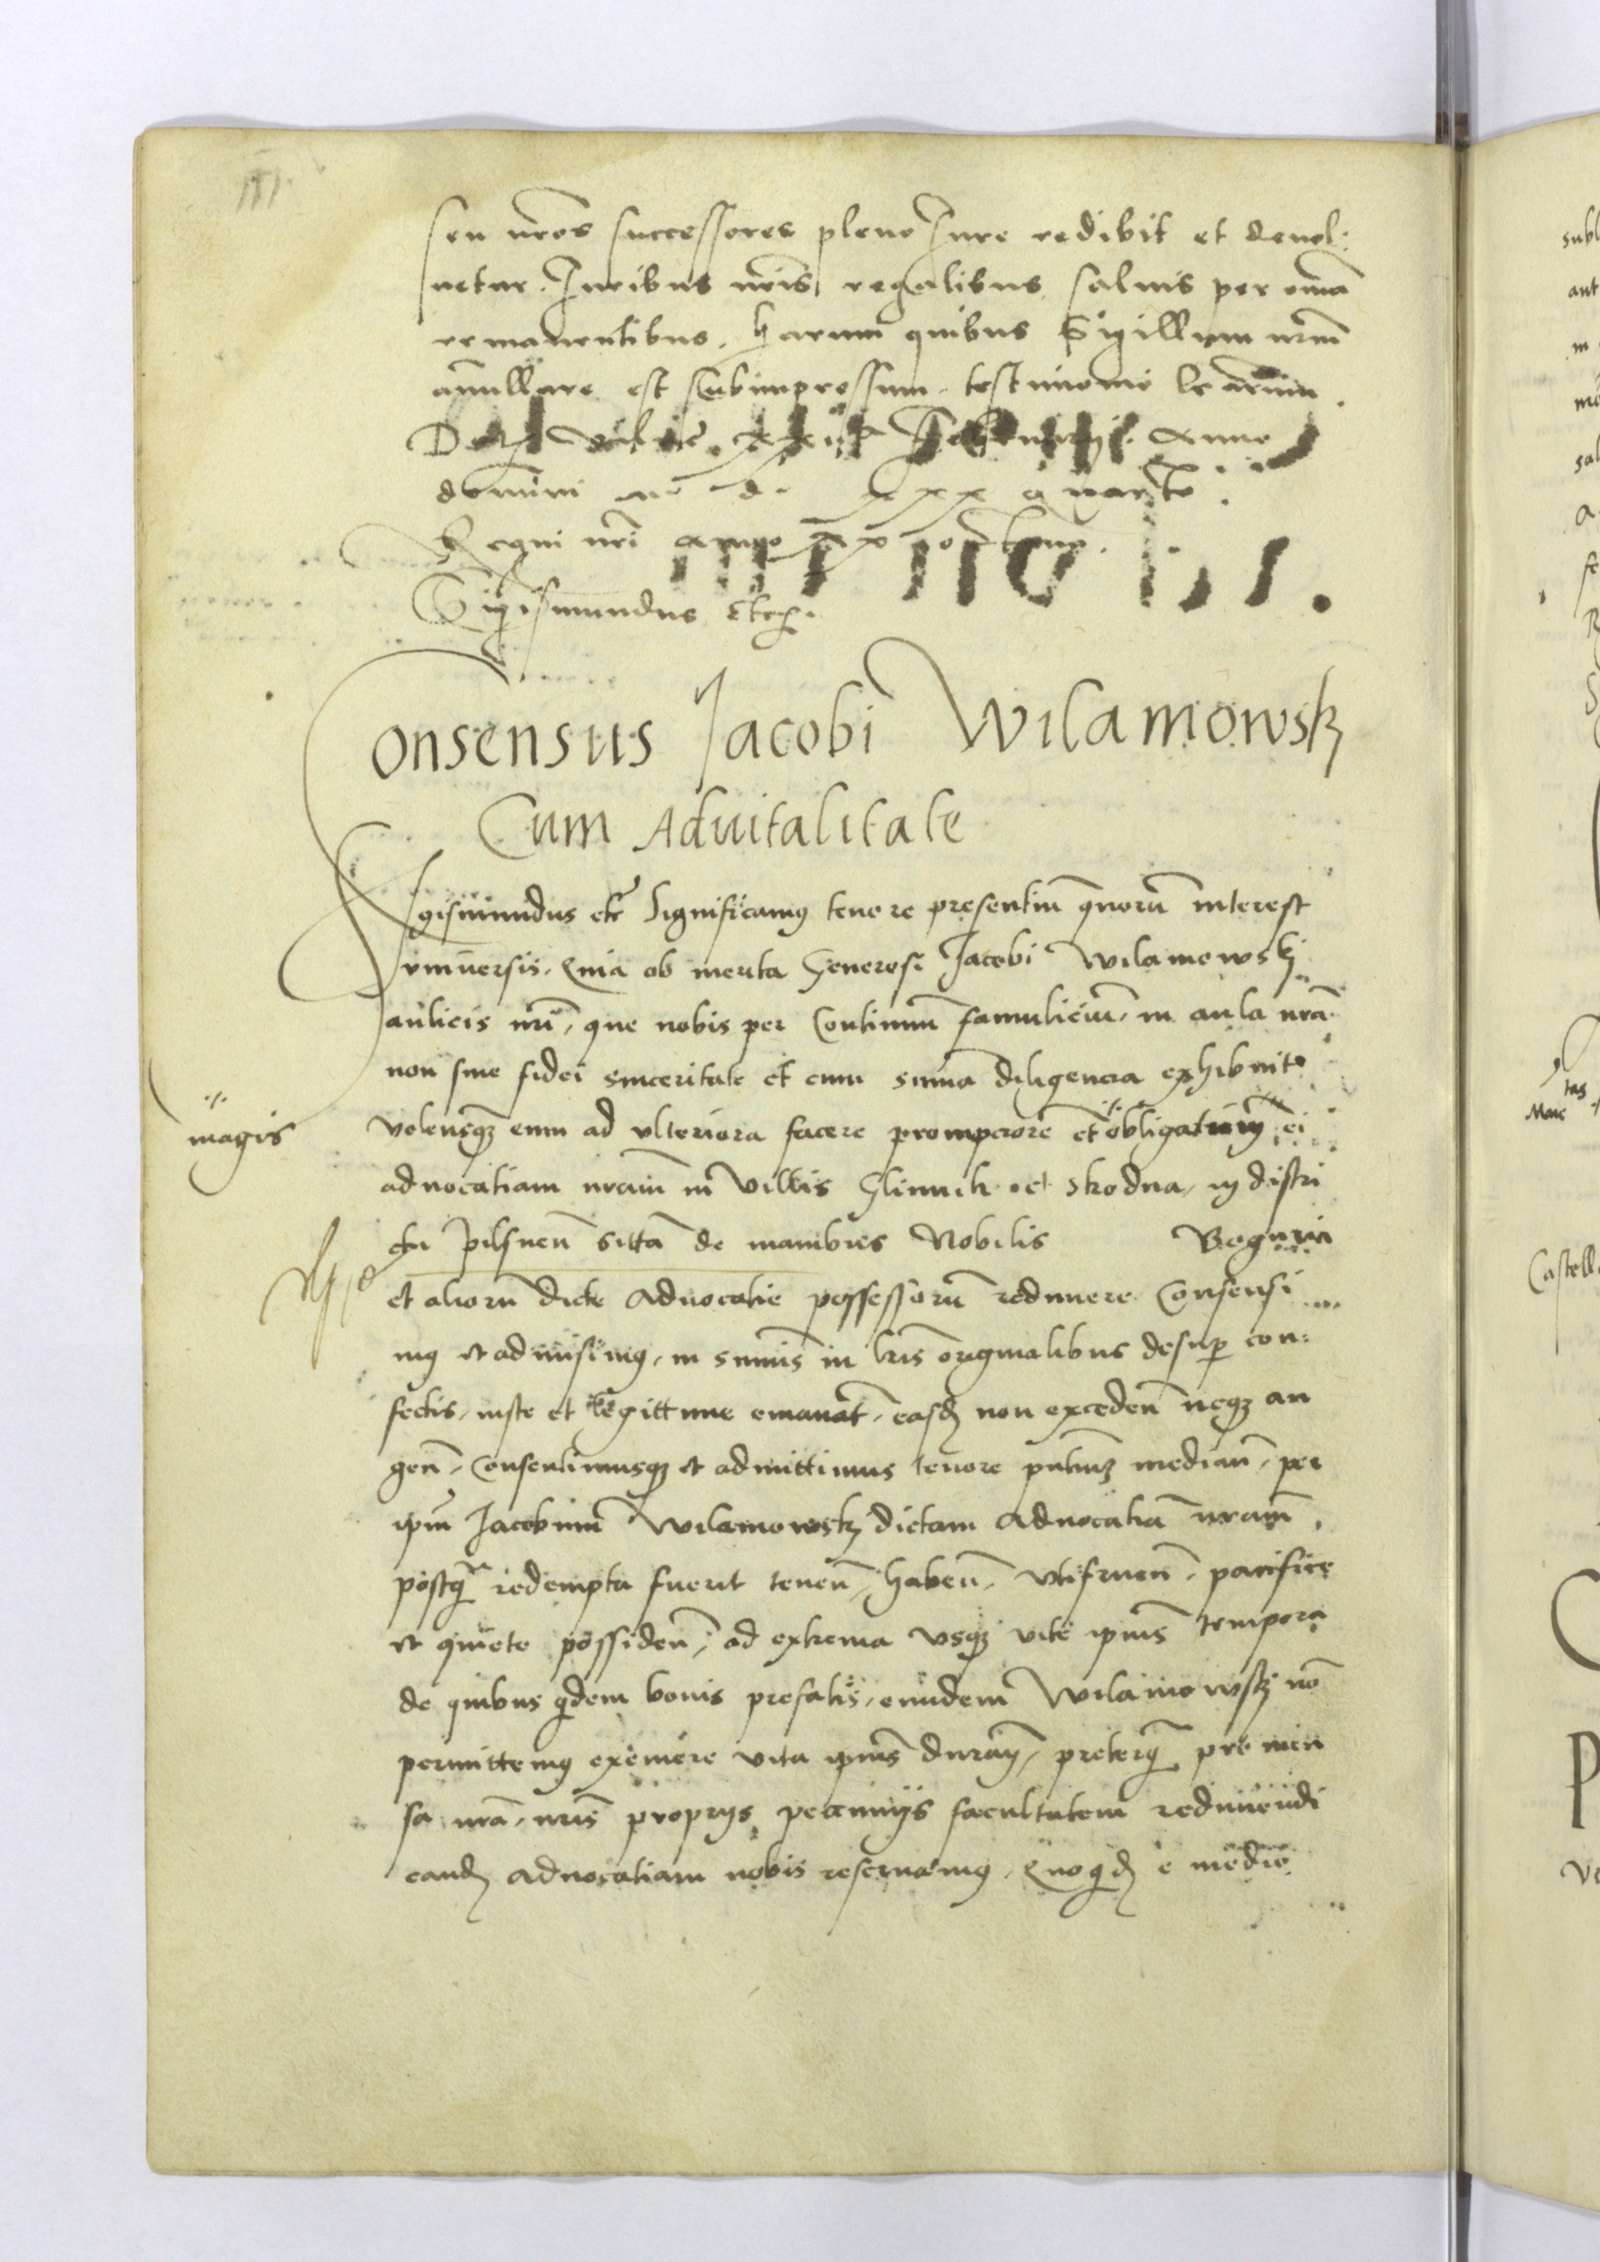 seu nros successores pleno Iure redibit et deuol:
uetur. Iuribus nris regalibus saluis per omia
remanentibus. harum quibus Sigillum nrum
anullare est subimpressum testimonio lrarum.
Dat Vilne Februarij anno
domini m d xxx quarto.
Regni nri anno octauo.
Sigismundus etc.
Consensus Jacobi Wilamowskj
Cum Aduitalitate
Sigismundus etc Significamus tenore presentium quorum interest
vniuersis. Quia ob merita Generosi Jacobi Wilamowskj
aulicis nri, que nobis per Continuum famulicium, in aula nra
non sine fidei sinceritate et cum suma diligencia exhibuit
magis
volensq eum ad vlteriora facere prompciorem et obligatum ei
aduocatiam nram in Villis Glinnik et Skodna, in distri
ctu pilsnen sitta de manibus Nobilis Boguria
et aliorum dicte aduocatie possessorum redimere Consensi
mus et admisimus, in sumis in lris originalibus desuper con:
fectis, iuste et legittime emanat, easd non exceden neq au
gen, Consentimusq et admittimus tenore pntium median, per
ipm Jacobum Wilamowskj dictam aduocatiam nram,
postq redempta fuerit tenen, haben, vtifruen, pacifice
et quiete possiden, ad extrema vsq vite ipius tempora
de quibus qdem bonis prefatis, eundem Wilamowskj no
permittemus eximere vita ipius duran, preterq pro men
sa nra, nris proprijs pecunijs facultatem redimendi
eand aduocatiam nobis reseruamus, Quoqd e medio